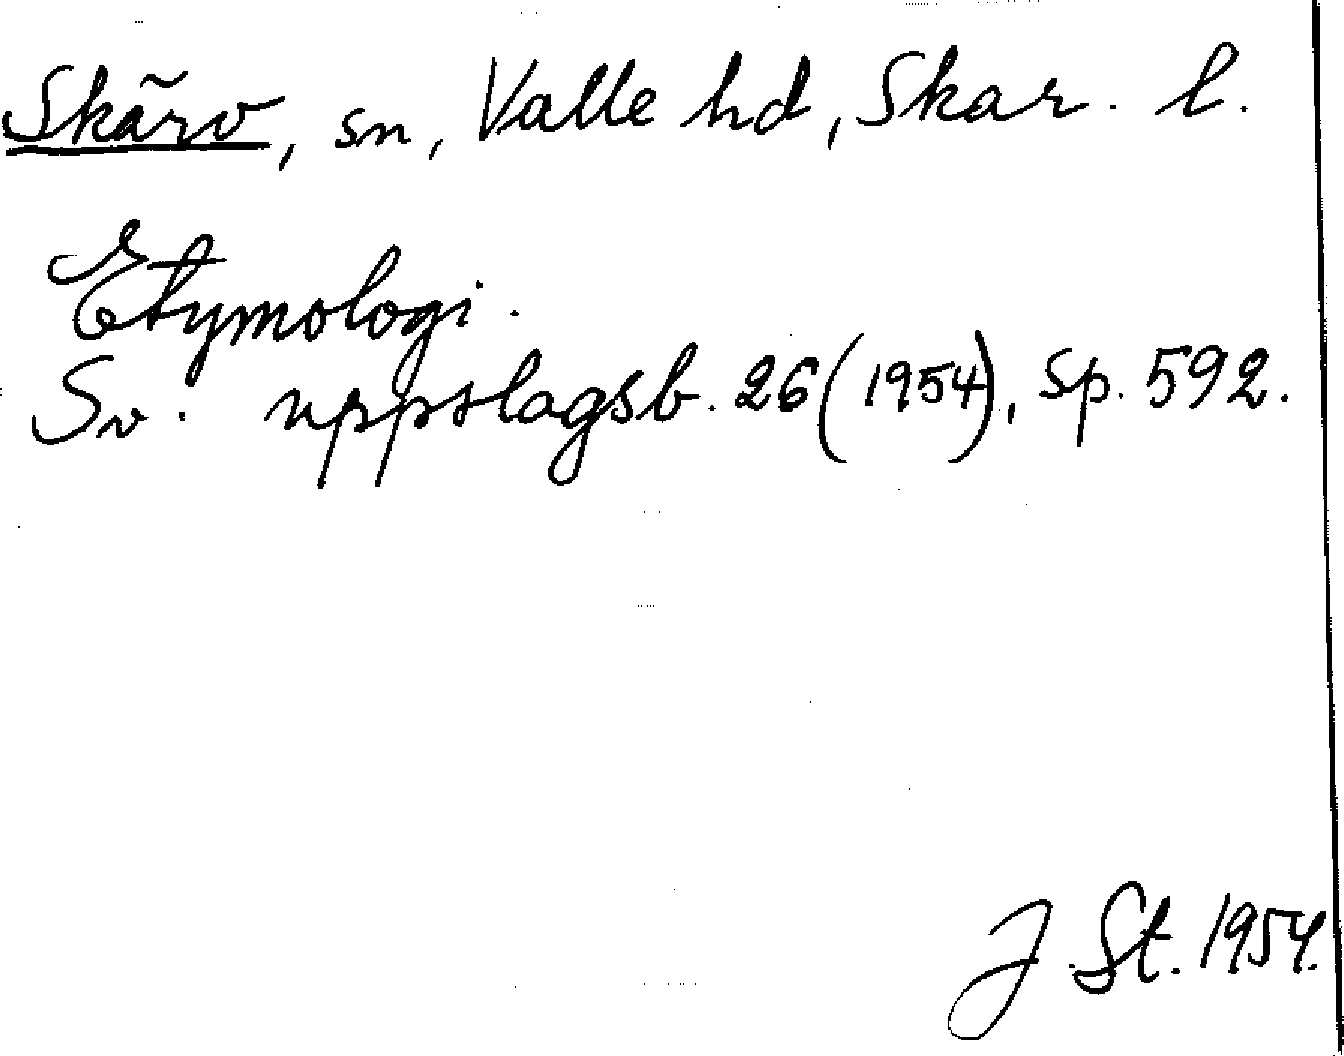 Skärv, sn, Valle hd, Skar. l.
Etymologi.
Sv. uppslagsb. 26 (1954), sp. 592.
J. St. 1954.